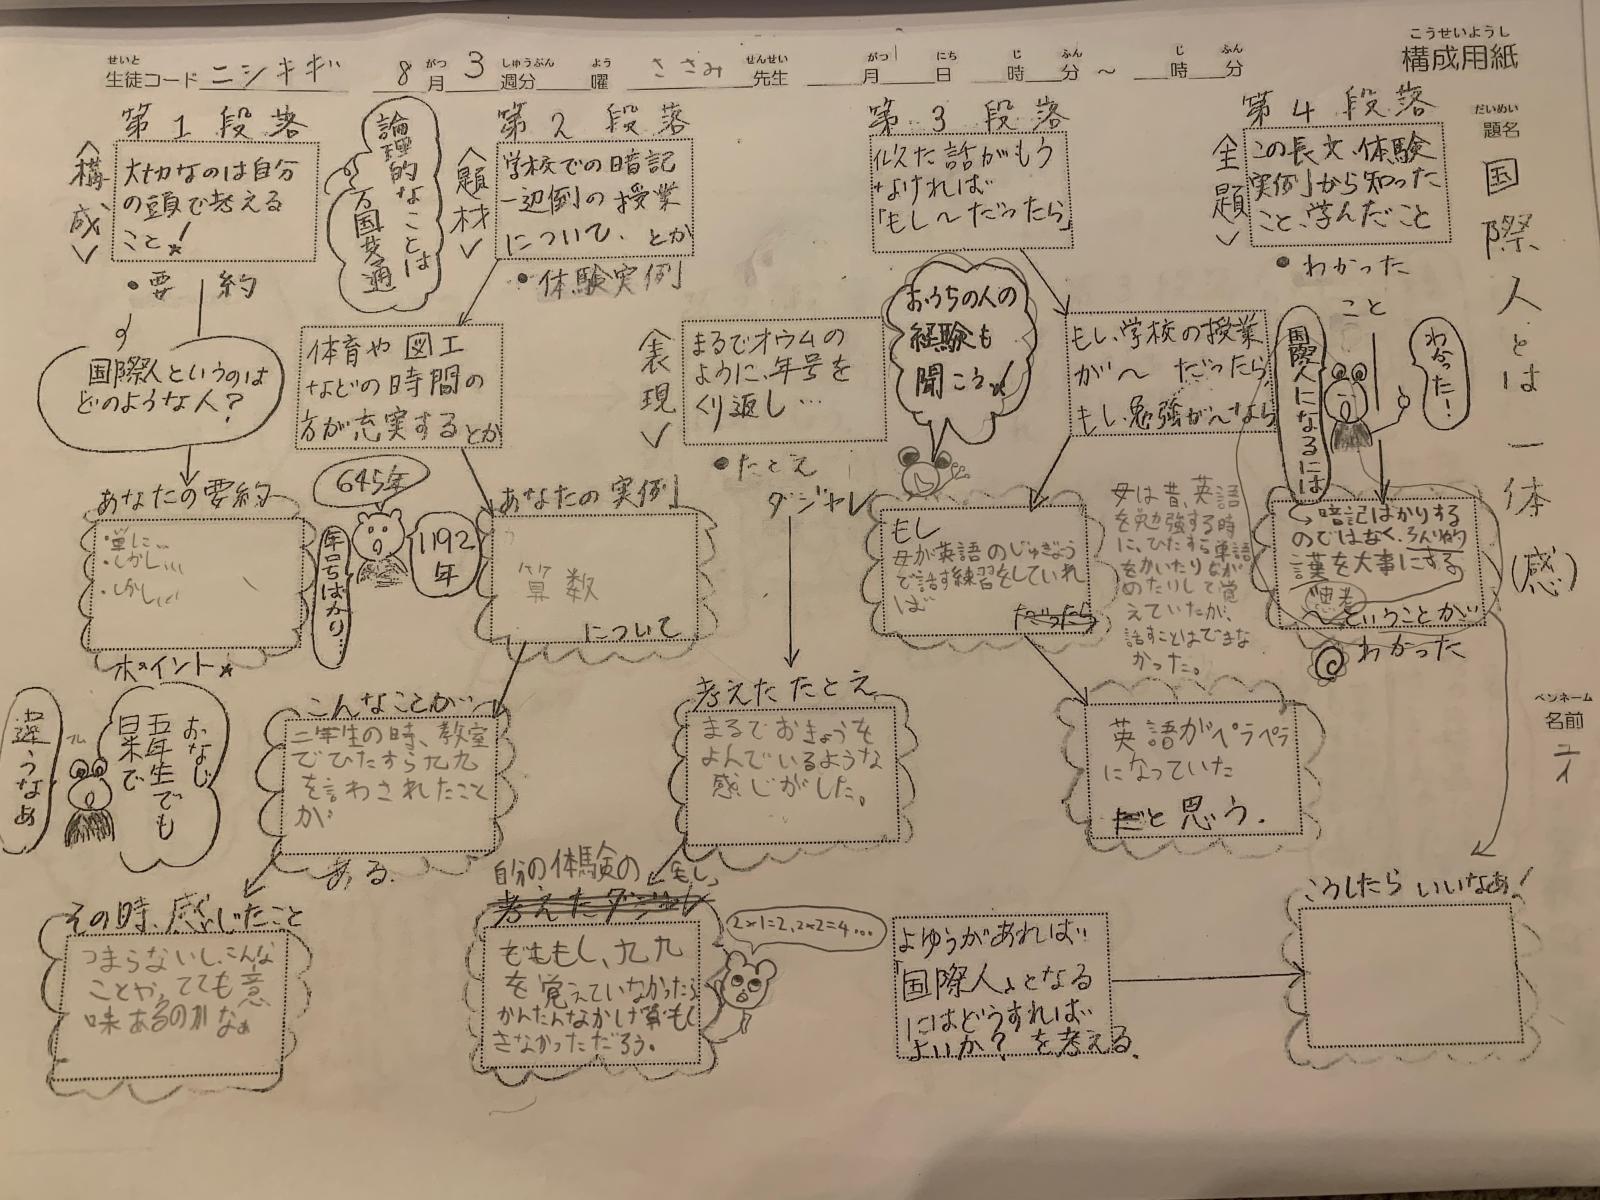 こうせいようし
構成用紙
せいと
生徒コード ニシキギ
8月3週分 曜
がつ しゅうぶん よう
ささみ 先生
せんせい
月 日 時 分 ～ 時 分
がつ にち じ ふん じ ふん
だいめい
題名
国際人とは一体(感)
ペンネーム
名前
第1段落
<構成>
大切なのは自分
の頭で考える
こと!
・要約
国際人というのは
どのような人?
あなたの要約
・単に…
・しかし…
・しかし…
ポイント☆
おなじ
五年生でも
日米で
違うなあ
その時、感じたこと
つまらないし、こんな
ことやってても意
味あるのかなぁ
論理的な
ことは
万国共通
第2段落
<題材>
学校での暗記
一辺倒の授業
について、とか
・体験実例
体育や図工
などの時間の
方が充実するとか
645年
1192年
年号ばかり…
あなたの実例
算数
について
こんなことが
二年生の時、教室
でひたすら九九
を言わされたこと
が
ある.
<表現>
まるでオウムの
ように、年号を
くり返し…
・たとえ
ダジャレ
考えたたとえ
まるでおきょうを
よんでいるような
感じがした。
自分の体験のもし、
考えたダジャレ
もし、九九
を覚えていなかったら
かんたんなかけ算も
できなかっただろう。
2×1=2, 2×2=4…
第3段落
似た話がもう
なければ
「もし～だったら」
おうちの人の
経験も
聞こう!
もし、学校の授業
が～だったら、
もし、勉強が～なら
もし
母が英語のじゅぎょう
で話す練習をしていれ
ば
だったら
母は昔、英語
を勉強する時
に、ひたすら単語
をかいたりなが
めたりして覚
えていたが、
話すことはできな
かった。
英語がペラペラ
になっていた
だと思う.
第4段落
<主題>
この長文、体験
実例から知った
こと、学んだこと
・わかった
こと
わ分った!
国際人になるには
暗記ばかりする
のではなく、ろんり的
～ということが
わかった
よゆうがあれば
「国際人」となる
にはどうすれば
よいか?を考える.
こうしたらいいなあ!